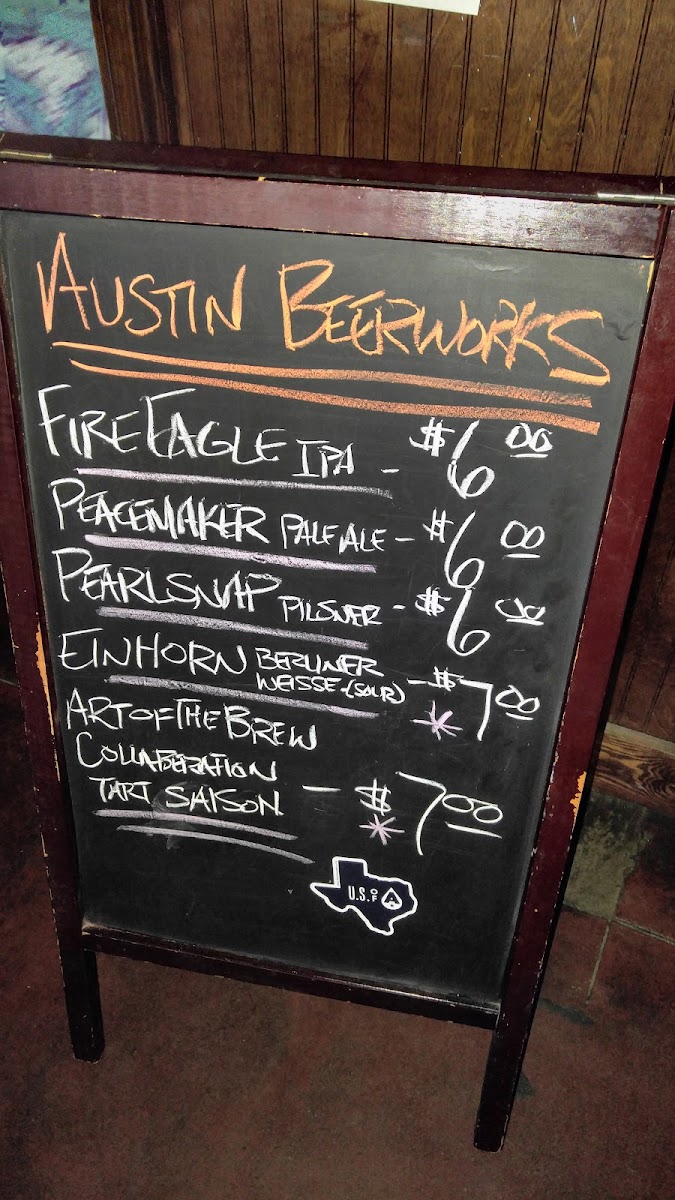 AUSTIN BEERWORKS
FIRE EAGLE IPA - $6 00
PEACEMAKER PALE ALE - $6 00
PEARLSNAP PILSNER - $6 00
EINHORN BERLINER WEISSE-(SOUR) - $7 00 *
ART OF THE BREW
COLLABERATION
TART SAISON - $7 00 *
U.S. OF A